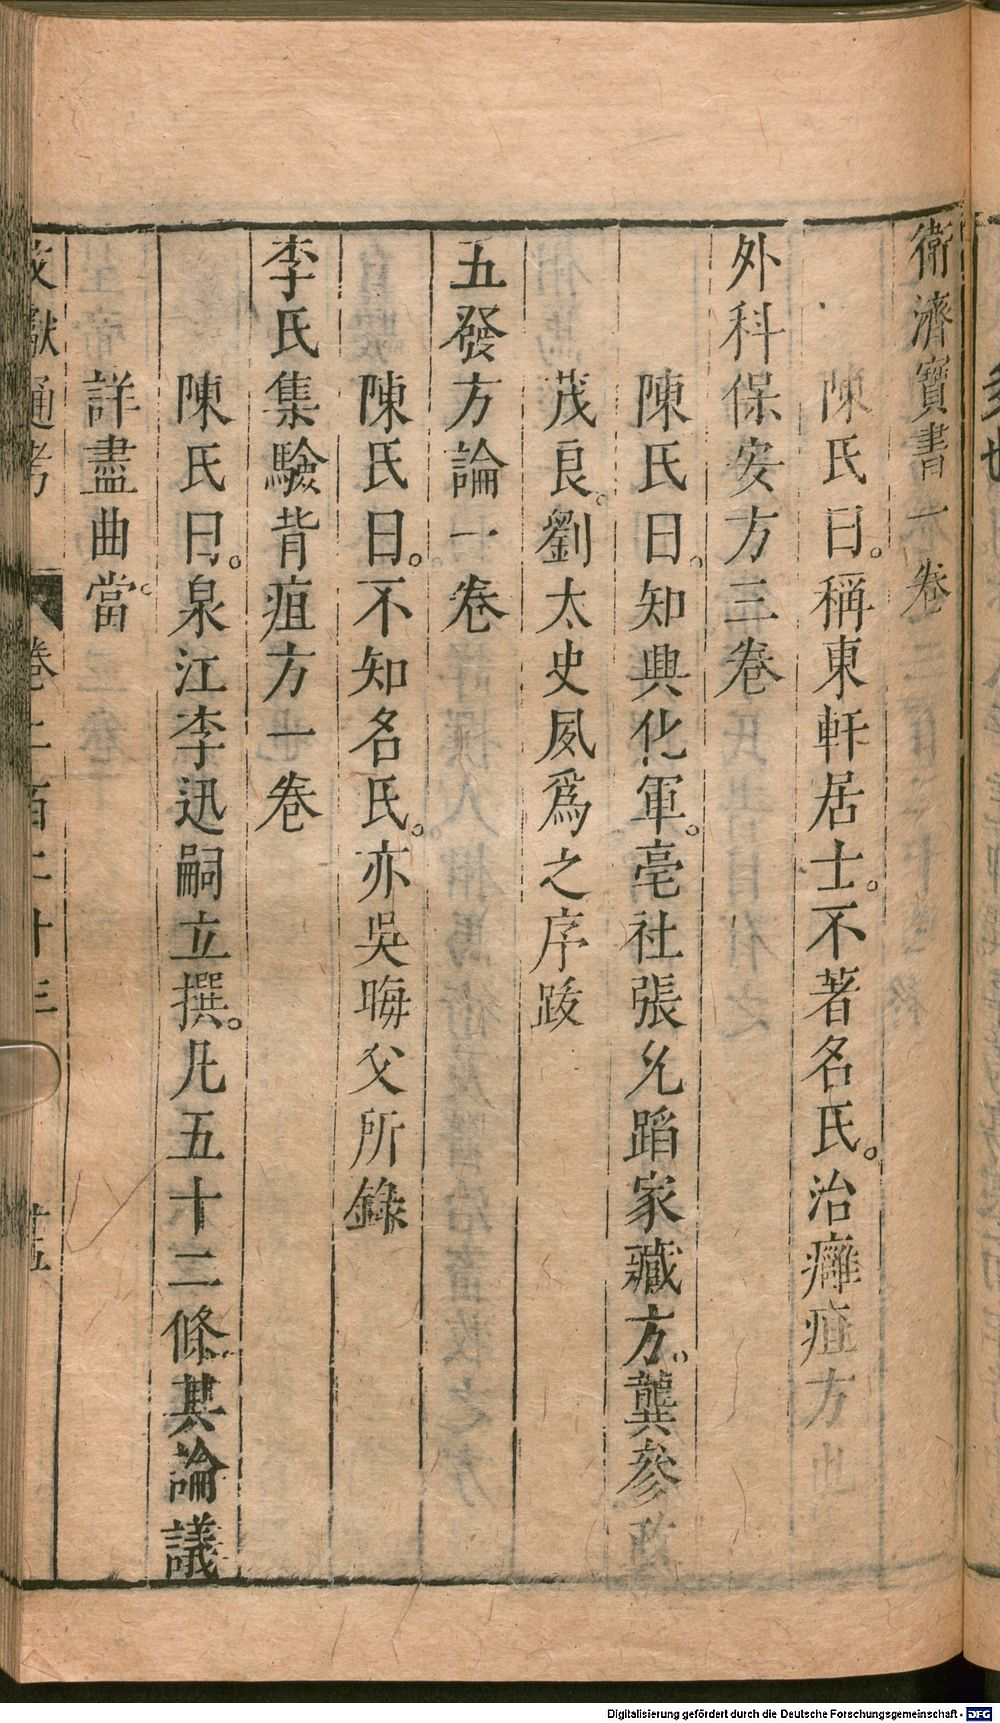 衛濟寶書一卷
陳氏曰。稱東軒居士。不著名氏。治癰疽方也
外科保安方三卷
陳氏曰。知興化軍。亳社張允蹈家藏方。龔參政
茂良。劉太史夙爲之序跋
五發方論一卷
陳氏曰。不知名氏。亦吳晦父所錄
李氏集驗背疽方一卷
陳氏曰。泉江李迅嗣立撰。凡五十二條。其論議
詳盡曲當。
文獻通考 卷二百二十三
Digitalisierung gefördert durch die Deutsche Forschungsgemeinschaft - DFG